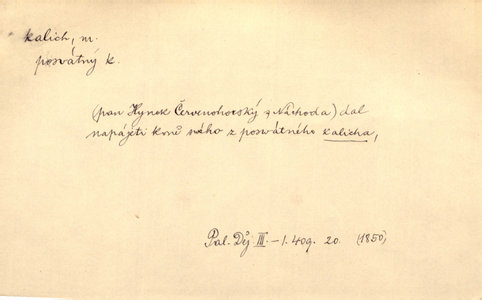 kalich, m.
posvátný k.
(pan Hynek Červenohorský z Náchoda) dal
napájeti koně svého z posvátného kalicha,
Pal. Děj. III. – 1. 409. 20. (1850)